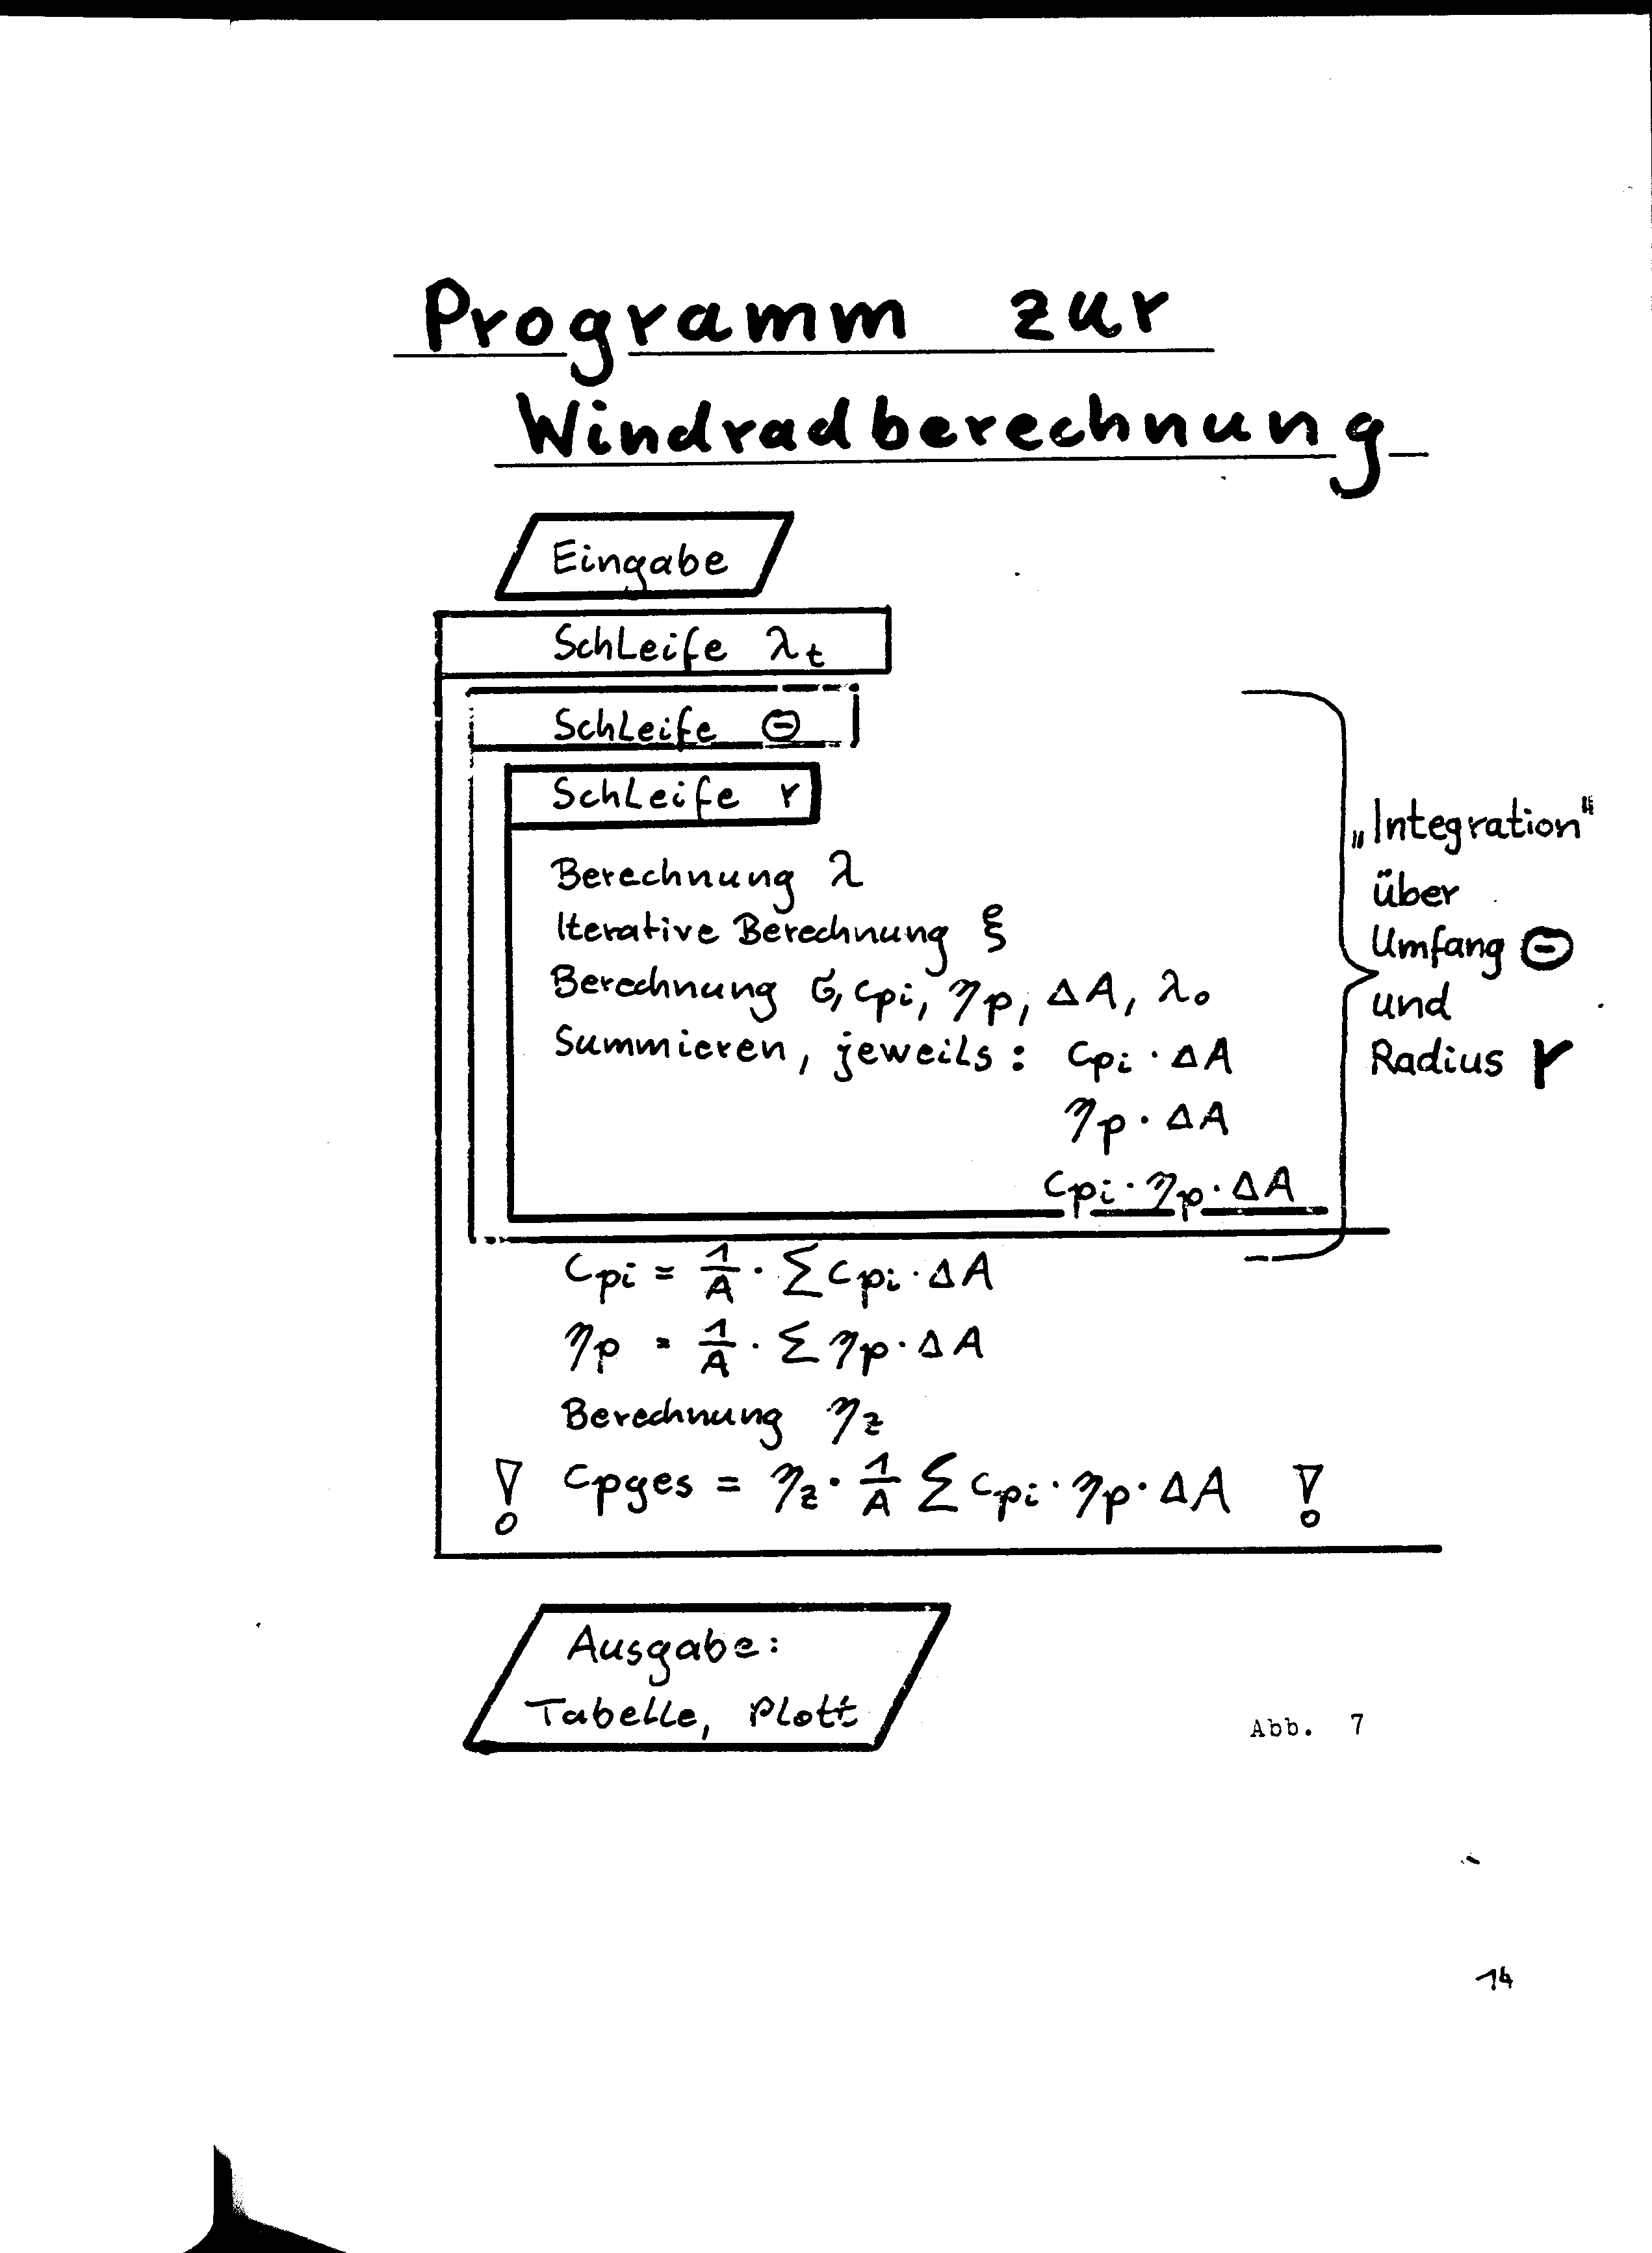 Programm zur
Windradberechnung
Eingabe
Schleife λt
Schleife Θ
Schleife r
Berechnung λ
Iterative Berechnung ξ
Berechnung G, cpi, ηp, ΔA, λo
Summieren, jeweils: cpi · ΔA
ηp · ΔA
cpi · ηp · ΔA
„Integration"
über
Umfang Θ
und
Radius r
cpi = 1/A · Σ cpi · ΔA
ηp = 1/A · Σ ηp · ΔA
Berechnung ηz
! cpges = ηz · 1/A Σ cpi · ηp · ΔA !
Ausgabe:
Tabelle, Plott
Abb. 7
14